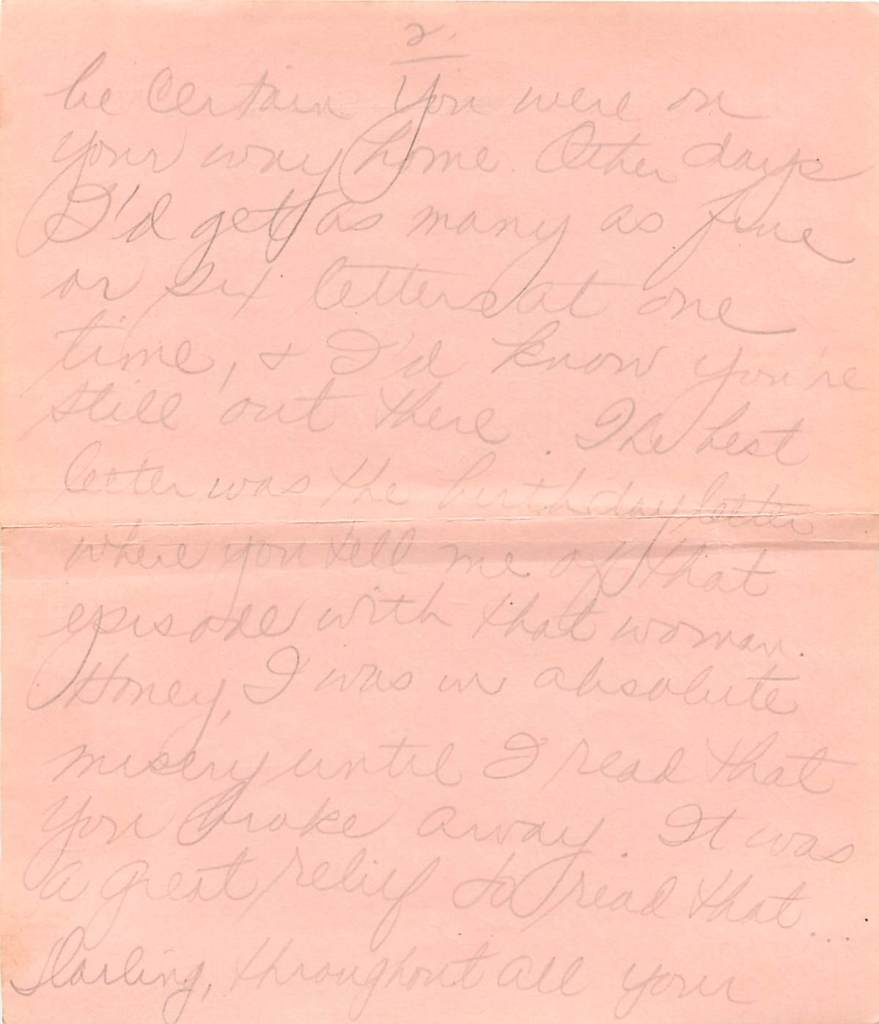 2.
be certain you were on
your way home. Other days
I'd get as many as five
or six letters at one
time, & I'd know you're
still out there. The best
letter was the birthday letter
where you tell me of that
episode with that woman.
Honey, I was in absolute
misery until I read that
you broke away. It was
a great relief to read that...
Darling, throughout all your